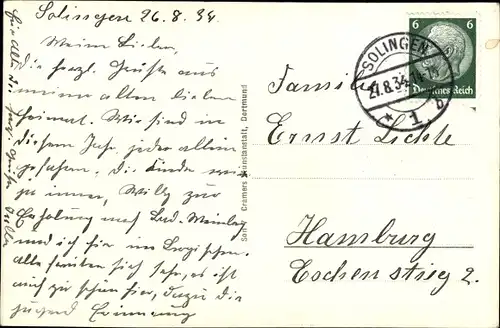 Solingen 26.8.34
Meine Lieben,
die herzl. Grüße aus
meiner alten lieben
Heimat. Wir sind in
diesem Jahr, jeder allein
gefahren. Die Kinder
Willy zur
Erholung nach Bad-
und ich hier im Bergischen.
Alle freuten sich sehr, es ist
auch zu schön hier, dazu die
Jugend Erinnerung
Familie
Ernst Lichte
Hamburg
Eochenstieg 2.
SOLINGEN
27.8.34
* 1 b
6 6
Deutsches Reich
Cramers Kunstanstalt, Dortmund